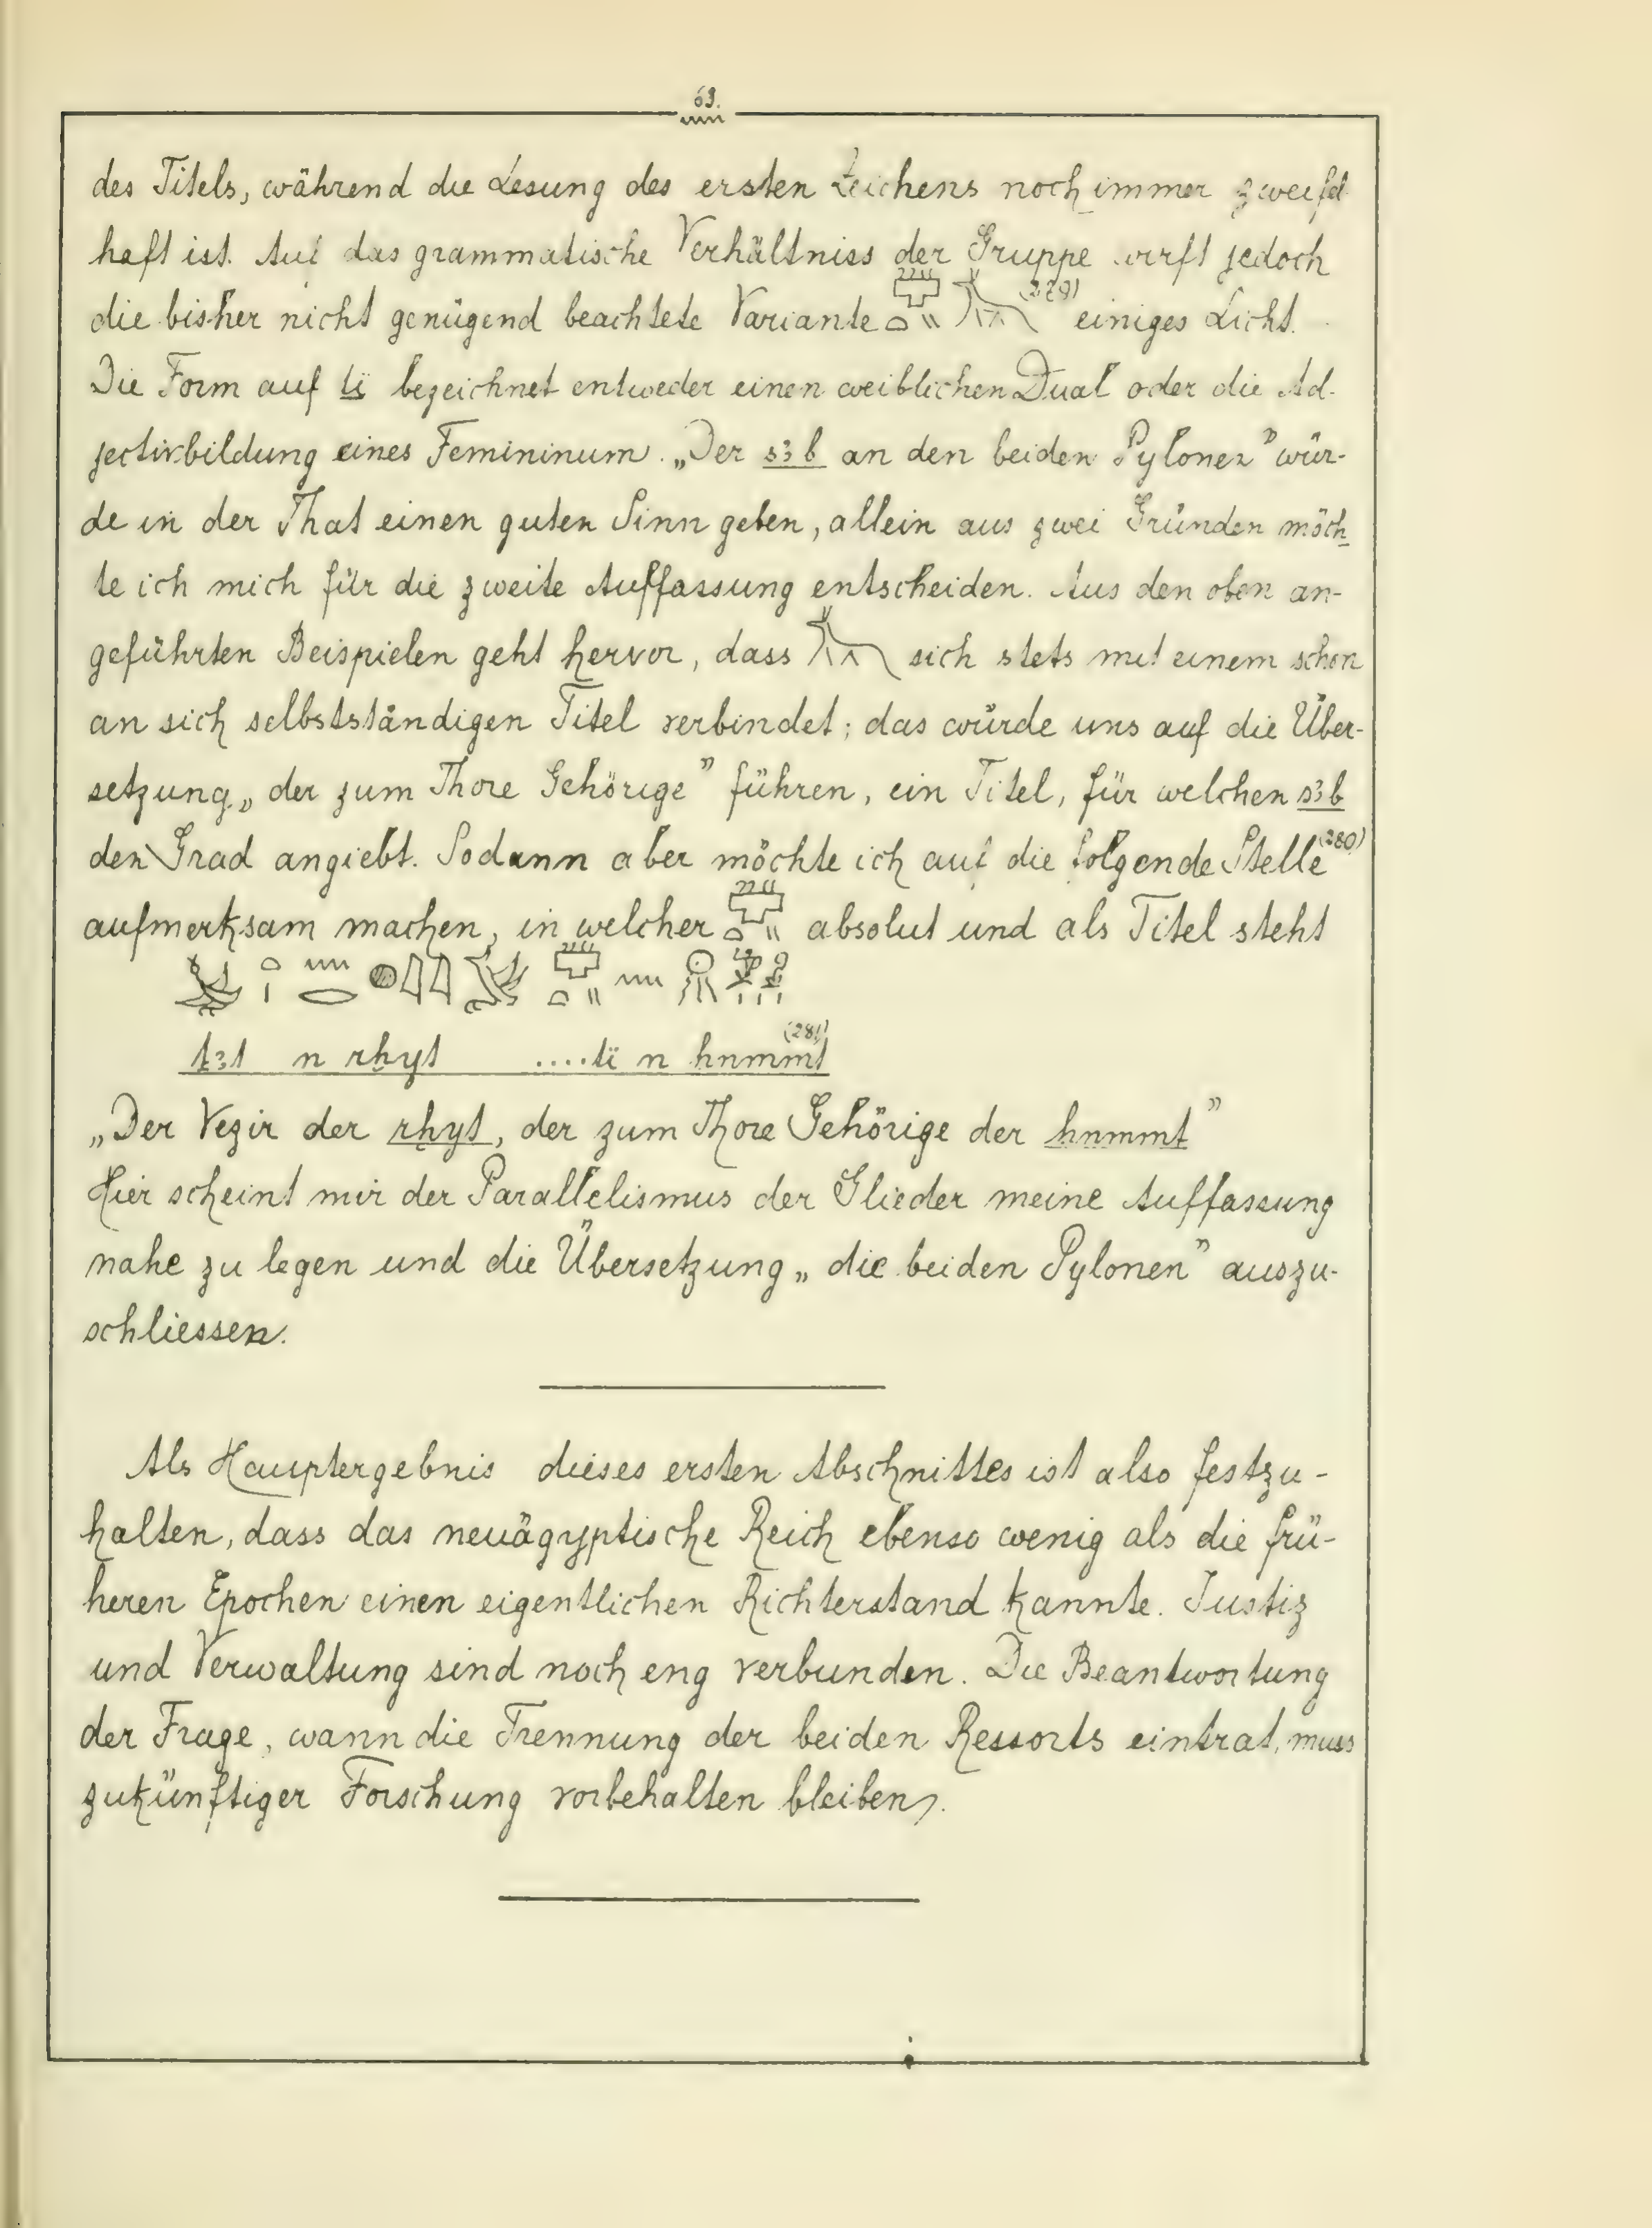 69.
des Titels, während die Lesung des ersten Zeichens noch immer zweifel
haft ist. Auf das grammatische Verhältniss der Gruppe wirft jedoch
die bisher nicht genügend beachtete Variante (279) einiges Licht.
Die Form auf tï bezeichnet entweder einen weiblichen Dual oder die Ad-
jectivbildung eines Femininum. „Der sꜣb an den beiden Pylonen” wür-
de in der That einen guten Sinn geben, allein aus zwei Gründen möch
te ich mich für die zweite Auffassung entscheiden. Aus den oben an-
geführten Beispielen geht hervor, dass sich stets mit einem schon
an sich selbstständigen Titel verbindet; das würde uns auf die Über-
setzung „der zum Thore Gehörige” führen, ein Titel, für welchen sꜣb
den Grad angiebt. Sodann aber möchte ich auf die folgende Stelle (280)
aufmerksam machen, in welcher absolut und als Titel steht
ṯꜣt n rḫyt ....tï n ḥnmmt (281)
„Der Vezir der rḫyt, der zum Thore Gehörige der ḥnmmt”
Hier scheint mir der Parallelismus der Glieder meine Auffassung
nahe zu legen und die Übersetzung „die beiden Pylonen” auszu-
schliessen.
Als Hauptergebnis dieses ersten Abschnittes ist also festzu-
halten, dass das neuägyptische Reich ebenso wenig als die frü-
heren Epochen einen eigentlichen Richterstand kannte. Justiz
und Verwaltung sind noch eng verbunden. Die Beantwortung
der Frage, wann die Trennung der beiden Ressorts eintrat, muss
zukünftiger Forschung vorbehalten bleiben.